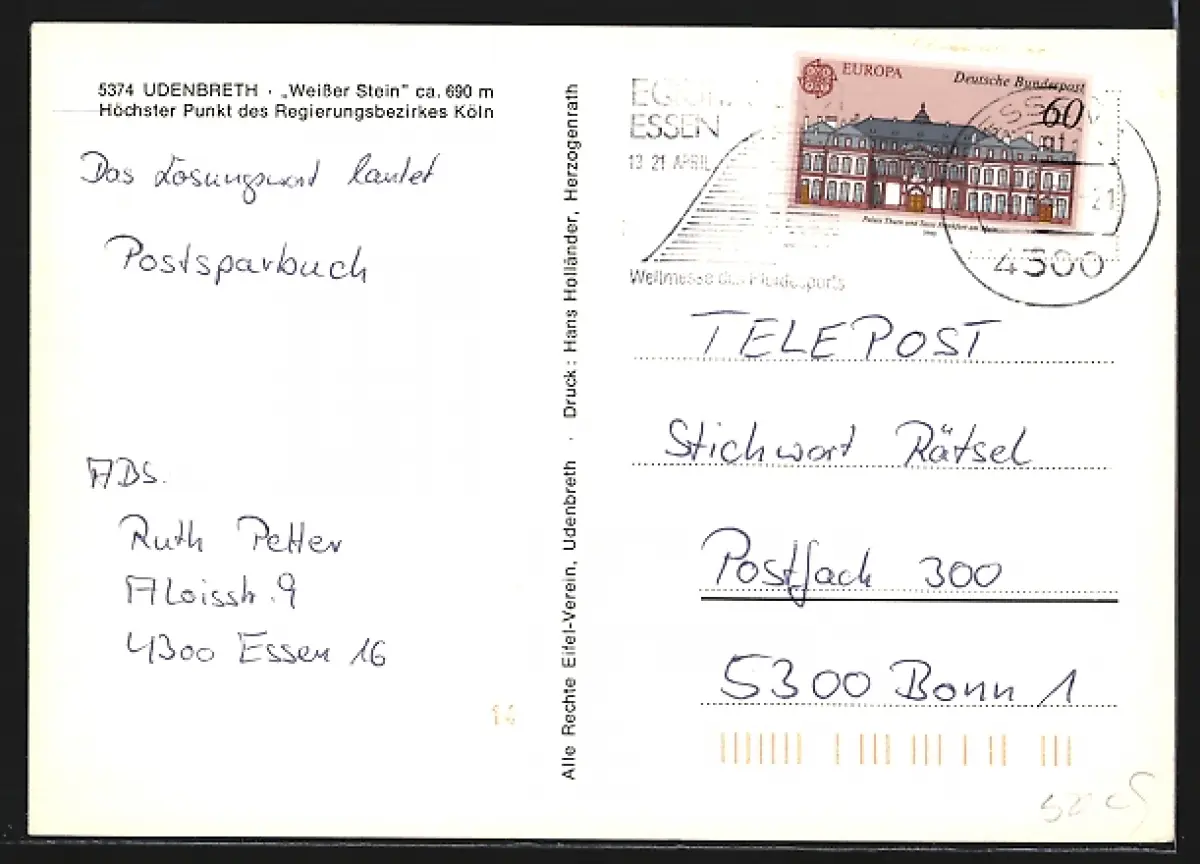 5374 UDENBRETH · „Weißer Stein" ca. 690 m
Höchster Punkt des Regierungsbezirkes Köln
Das Lösungswort lautet
Postsparbuch
ABS.
Ruth Petter
Aloisstr. 9
4300 Essen 16
14
Alle Rechte Eifel-Verein, Udenbreth · Druck: Hans Holländer, Herzogenrath
ESSEN
13 21 APRIL
Weltmesse des Pferdesports
EUROPA
Deutsche Bundespost
60
Palais Thurn und Taxis Frankfurt am Main
1990
ESSEN
21
4300
TELEPOST
Stichwort Rätsel
Postfach 300
5300 Bonn 1